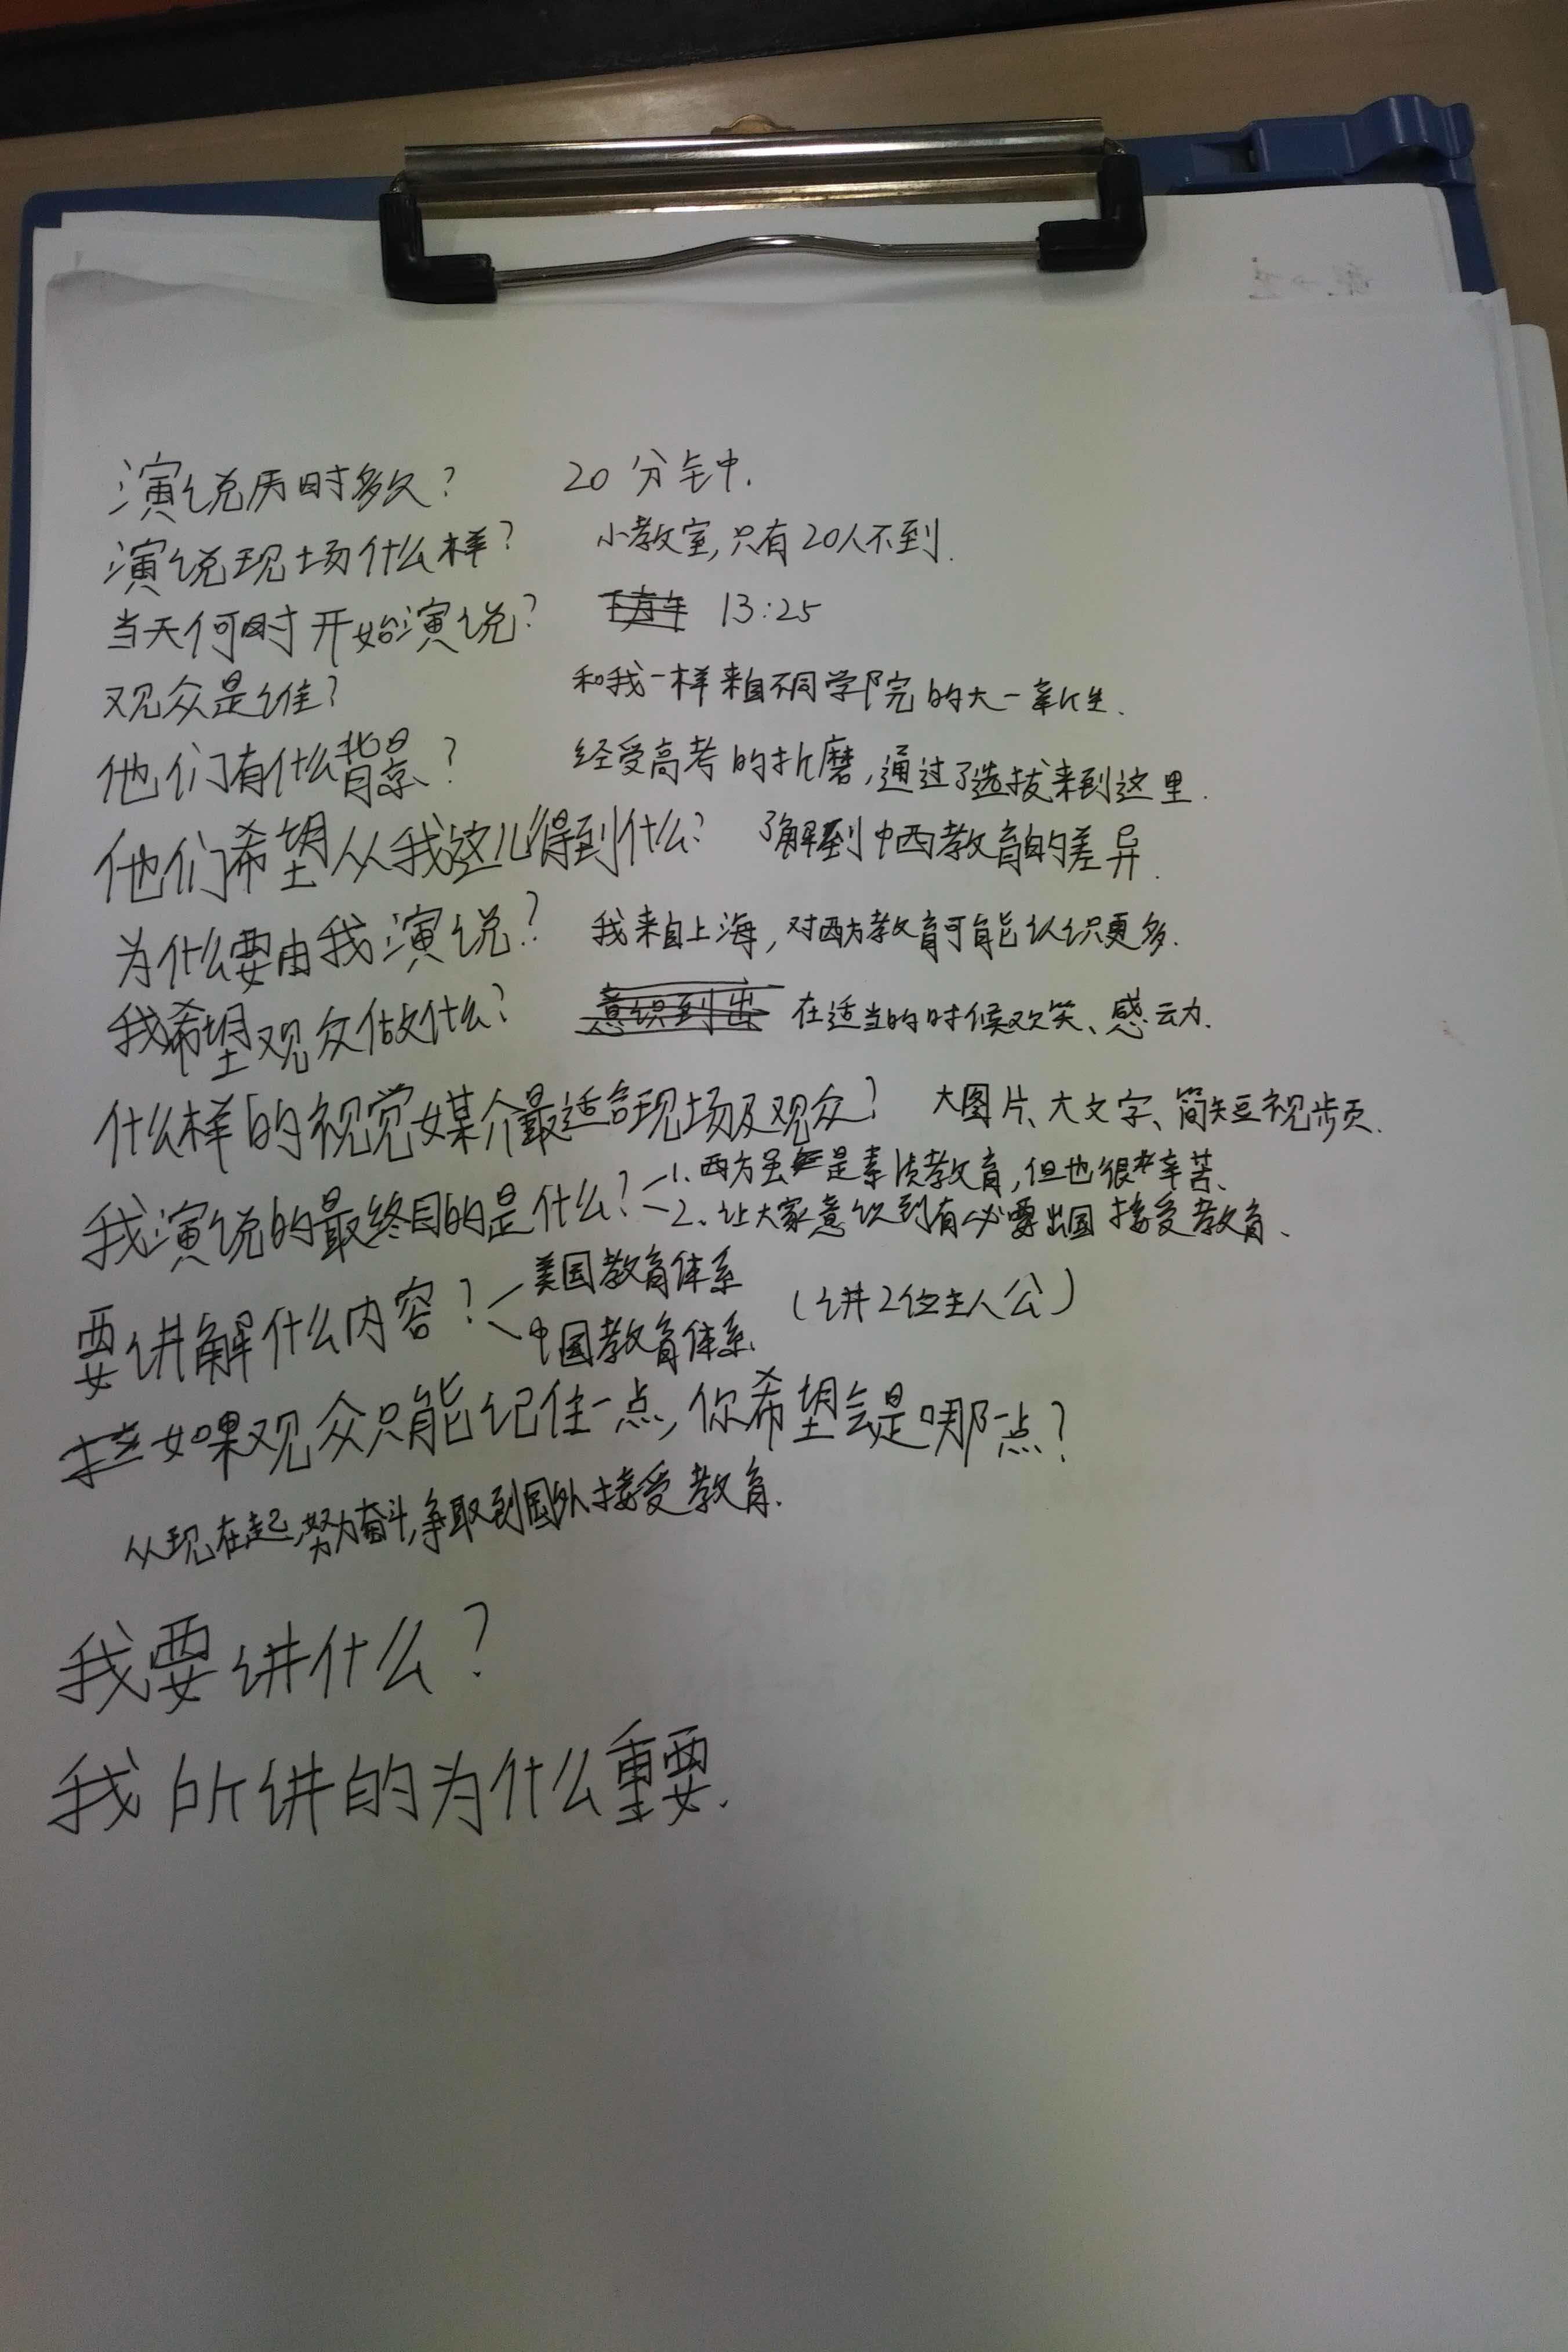 演说历时多久? 20分钟.
演说现场什么样? 小教室,只有20人不到.
当天何时开始演说? 13:25
观众是谁? 和我一样来自不同学院的大一新生.
他们有什么背景? 经受高考的折磨,通过了选拔来到这里.
他们希望从我这儿得到什么? 了解到中西教育的差异.
为什么要由我演说? 我来自上海,对西方教育可能认识更多.
我希望观众做什么? 意识到出 在适当的时候欢笑、感动.
什么样的视觉媒介最适合现场及观众? 大图片、大文字、简短视频.
我演说的最终目的是什么? 1.西方虽是素质教育,但也很辛苦、
2.让大家意识到有必要出国接受教育、
要讲解什么内容? 美国教育体系
中国教育体系. (讲2位主人公)
如果观众只能记住一点,你希望会是哪一点?
从现在起,努力奋斗,争取到国外接受教育.
我要讲什么?
我所讲的为什么重要.